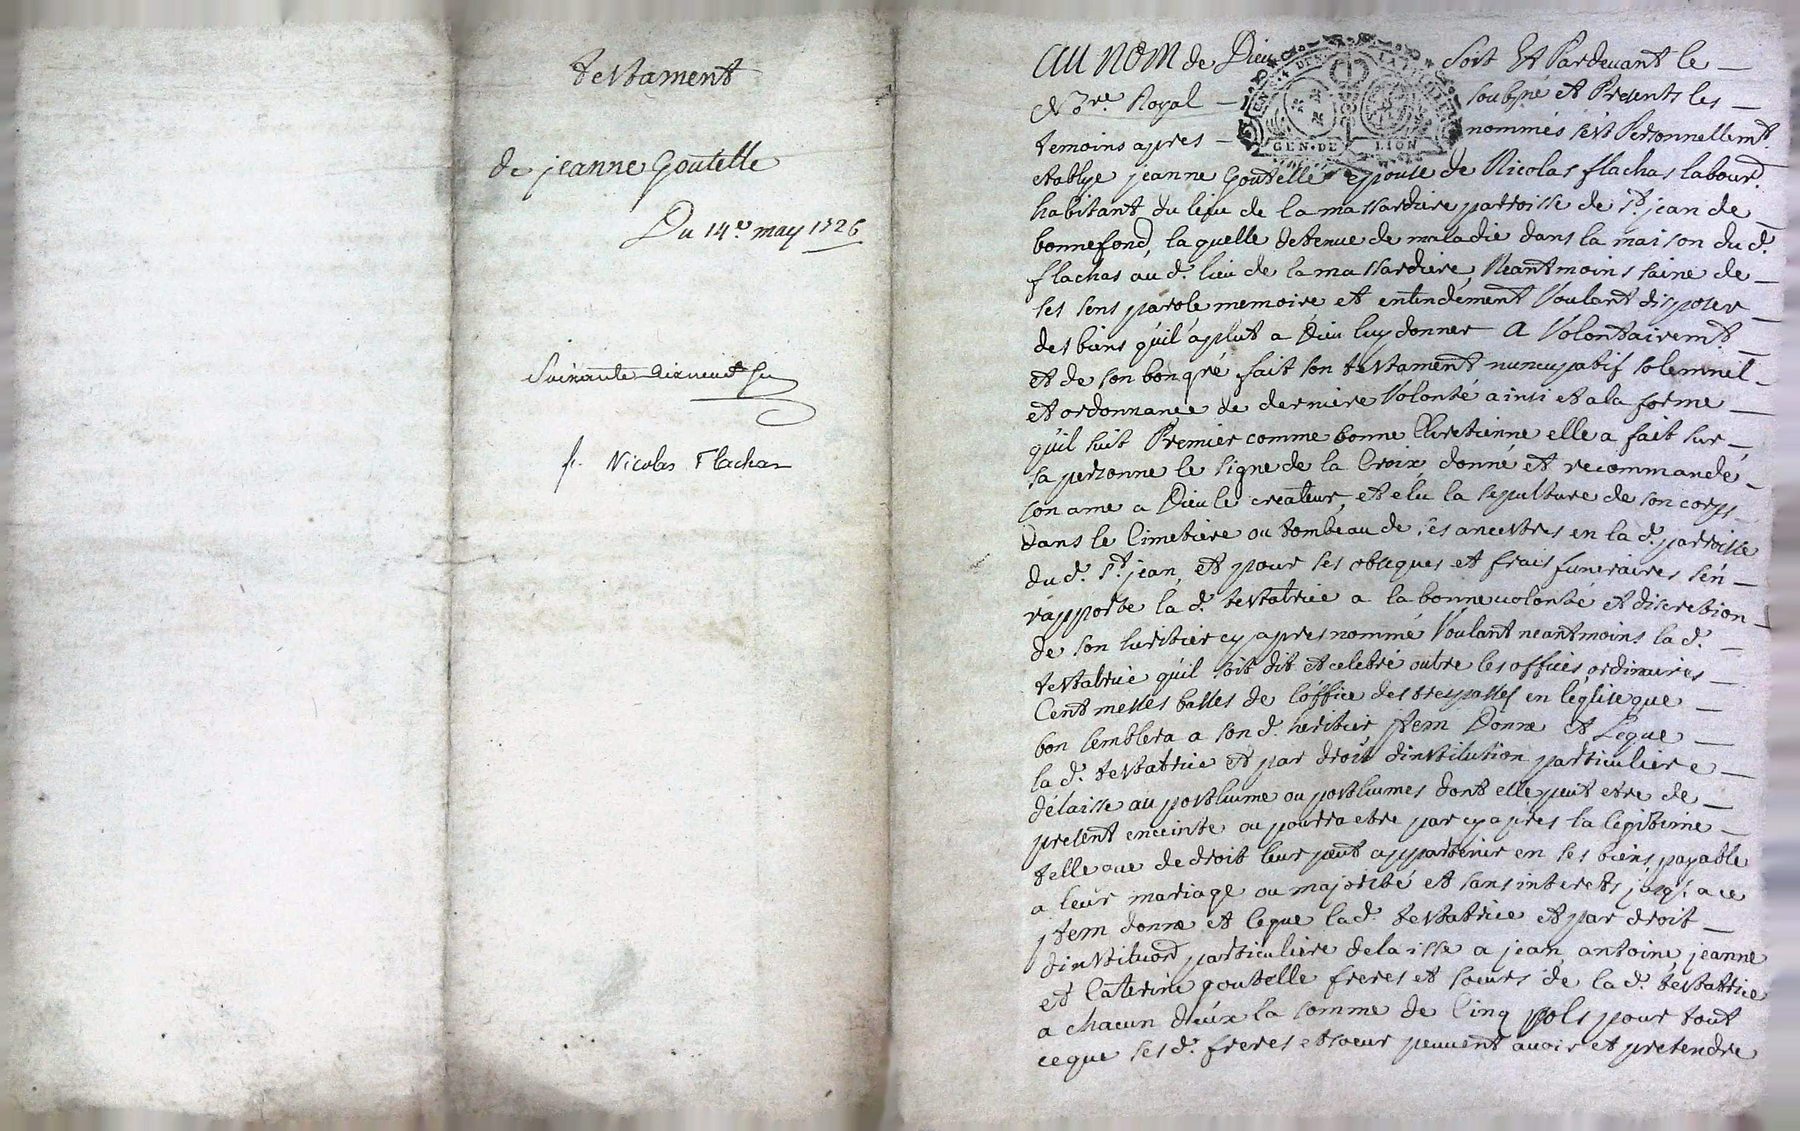 testament
de jeanne Goutelle
Du 14e. may 1726
Soixante dix neuf
p. Nicolas Flachas
AU NOM de Dieu soit Et Pardevant le
Nore Royal soubsné et Presents les
temoins apres nommés s'est Personnellemt.
etablye jeanne Goutelle epouse de Nicolas flachas labourd.
habitant du lieu de la massardiere parroisse de st. jean de
bonnefond, laquelle detenue de maladie dans la maison du d.
flachas au d. lieu de la massardiere, Neantmoins saine de
ses sens parole memoire et entendement Voulant disposer
des biens qu'il a plut a Dieu luy donner A Volontairemt.
et de son bon gré fait son testament nuncupatif solemnel
et ordonnance de derniere Volonté ainsi et a la forme
qu'il suit Premier comme bonne Chretienne elle a fait sur
sa personne le signe de la Croix, donné et recommandé
son ame a Dieu le createur, et elu la sepulture de son corps
dans le Cimetiere ou tombeau de ses ancestres en la d. parroisse
du d. st. jean, et pour ses obseques et frais funeraires s'en
rapporte la d. testatrice a la bonne volonté et discretion
de son heritier cy apres nommé Voulant neantmoins la d.
testatrice qu'il soit dit et celebré outre les offices ordinaires
Cent messes basses de l'office des trespassés en l'eglise que
bon semblera a son d. heritier jtem Donne et Legue
la d. testatrice et par droit d'institution particuliere
délaisse au posthume ou posthumes dont elle peut etre de
present enceinte ou pourra etre par cy apres la legitime
telle que de droit leur peut appartenir en ses biens payable
a leur mariage ou majorité et sans interets jusq. a ce
jtem donne et legue la d. testatrice et par droit
d'institu͠on particuliere delaisse a jean, antoine, jeanne
et Caterine goutelle freres et soeurs de la d. testatrice
a chacun d'eux la somme de Cinq sols pour tout
ce que ses d. freres et soeur peuvent avoir et pretendre
GEN. DE LION